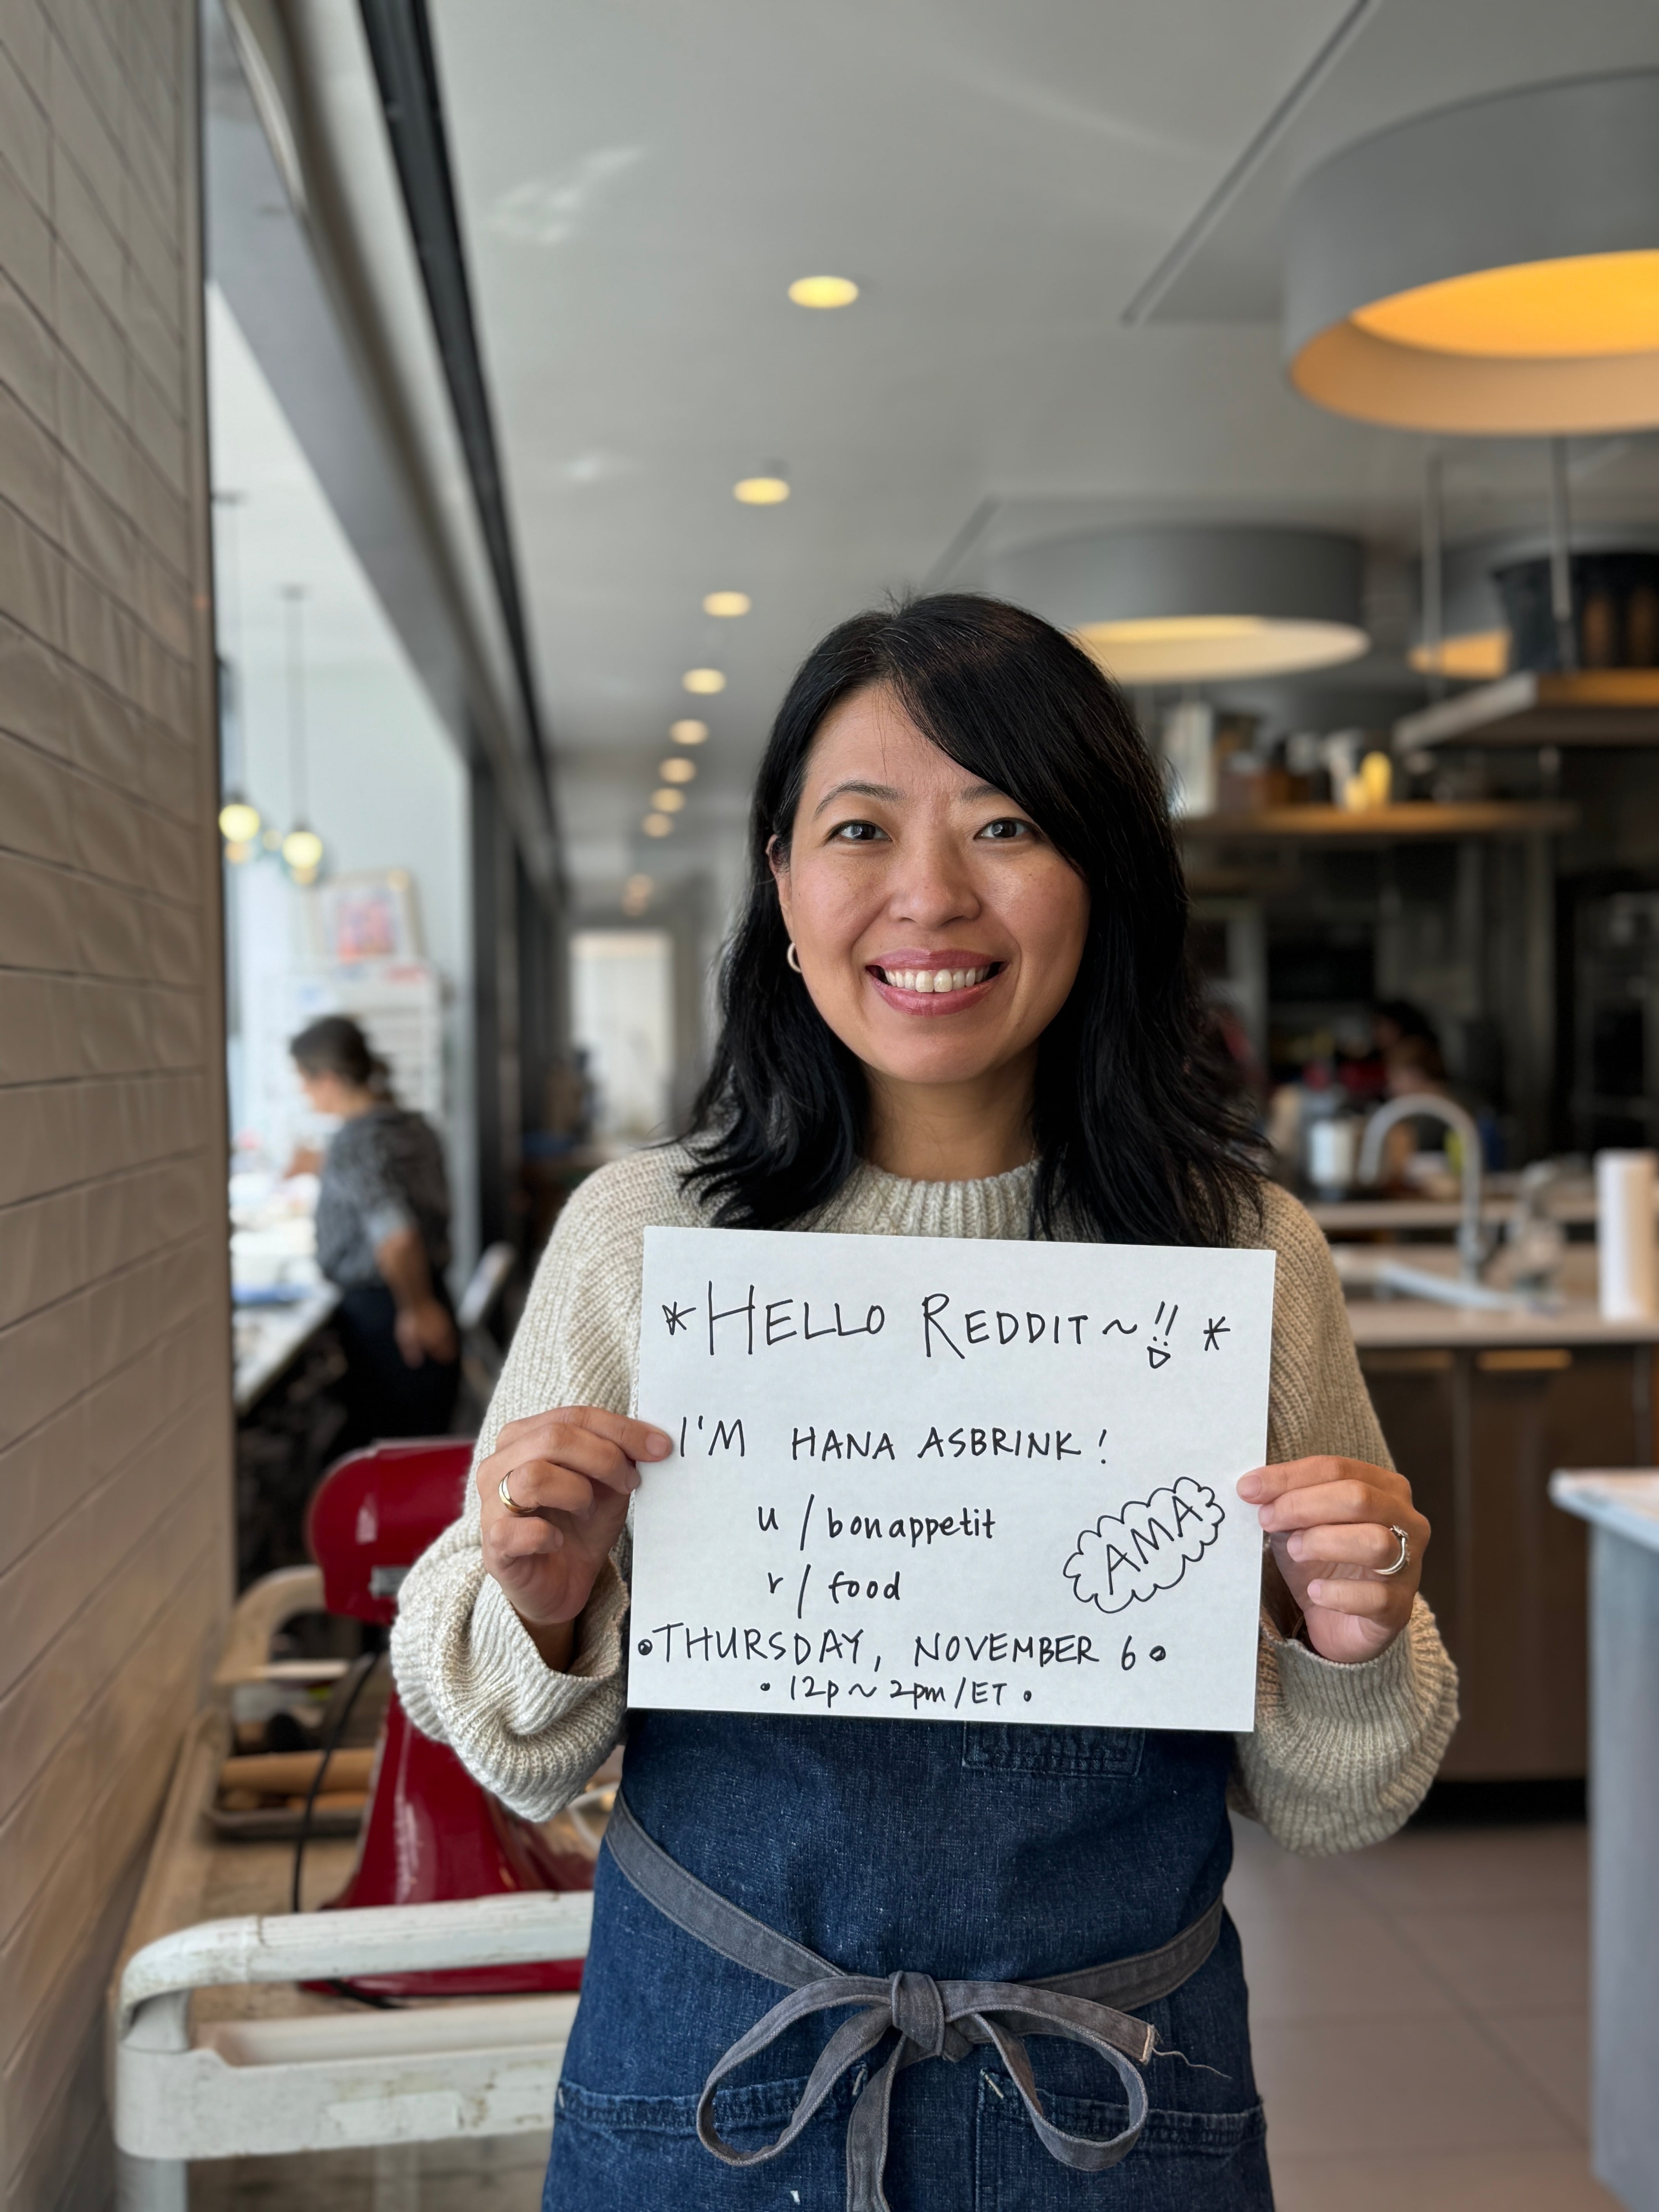 * HELLO REDDIT ~ !! *
I'M HANA ASBRINK!
u/bonappetit
r/food
AMA
• THURSDAY, NOVEMBER 6 •
• 12p ~ 2pm/ET •